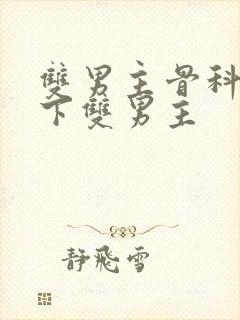 雙男主骨科
下雙男主
静飛雪